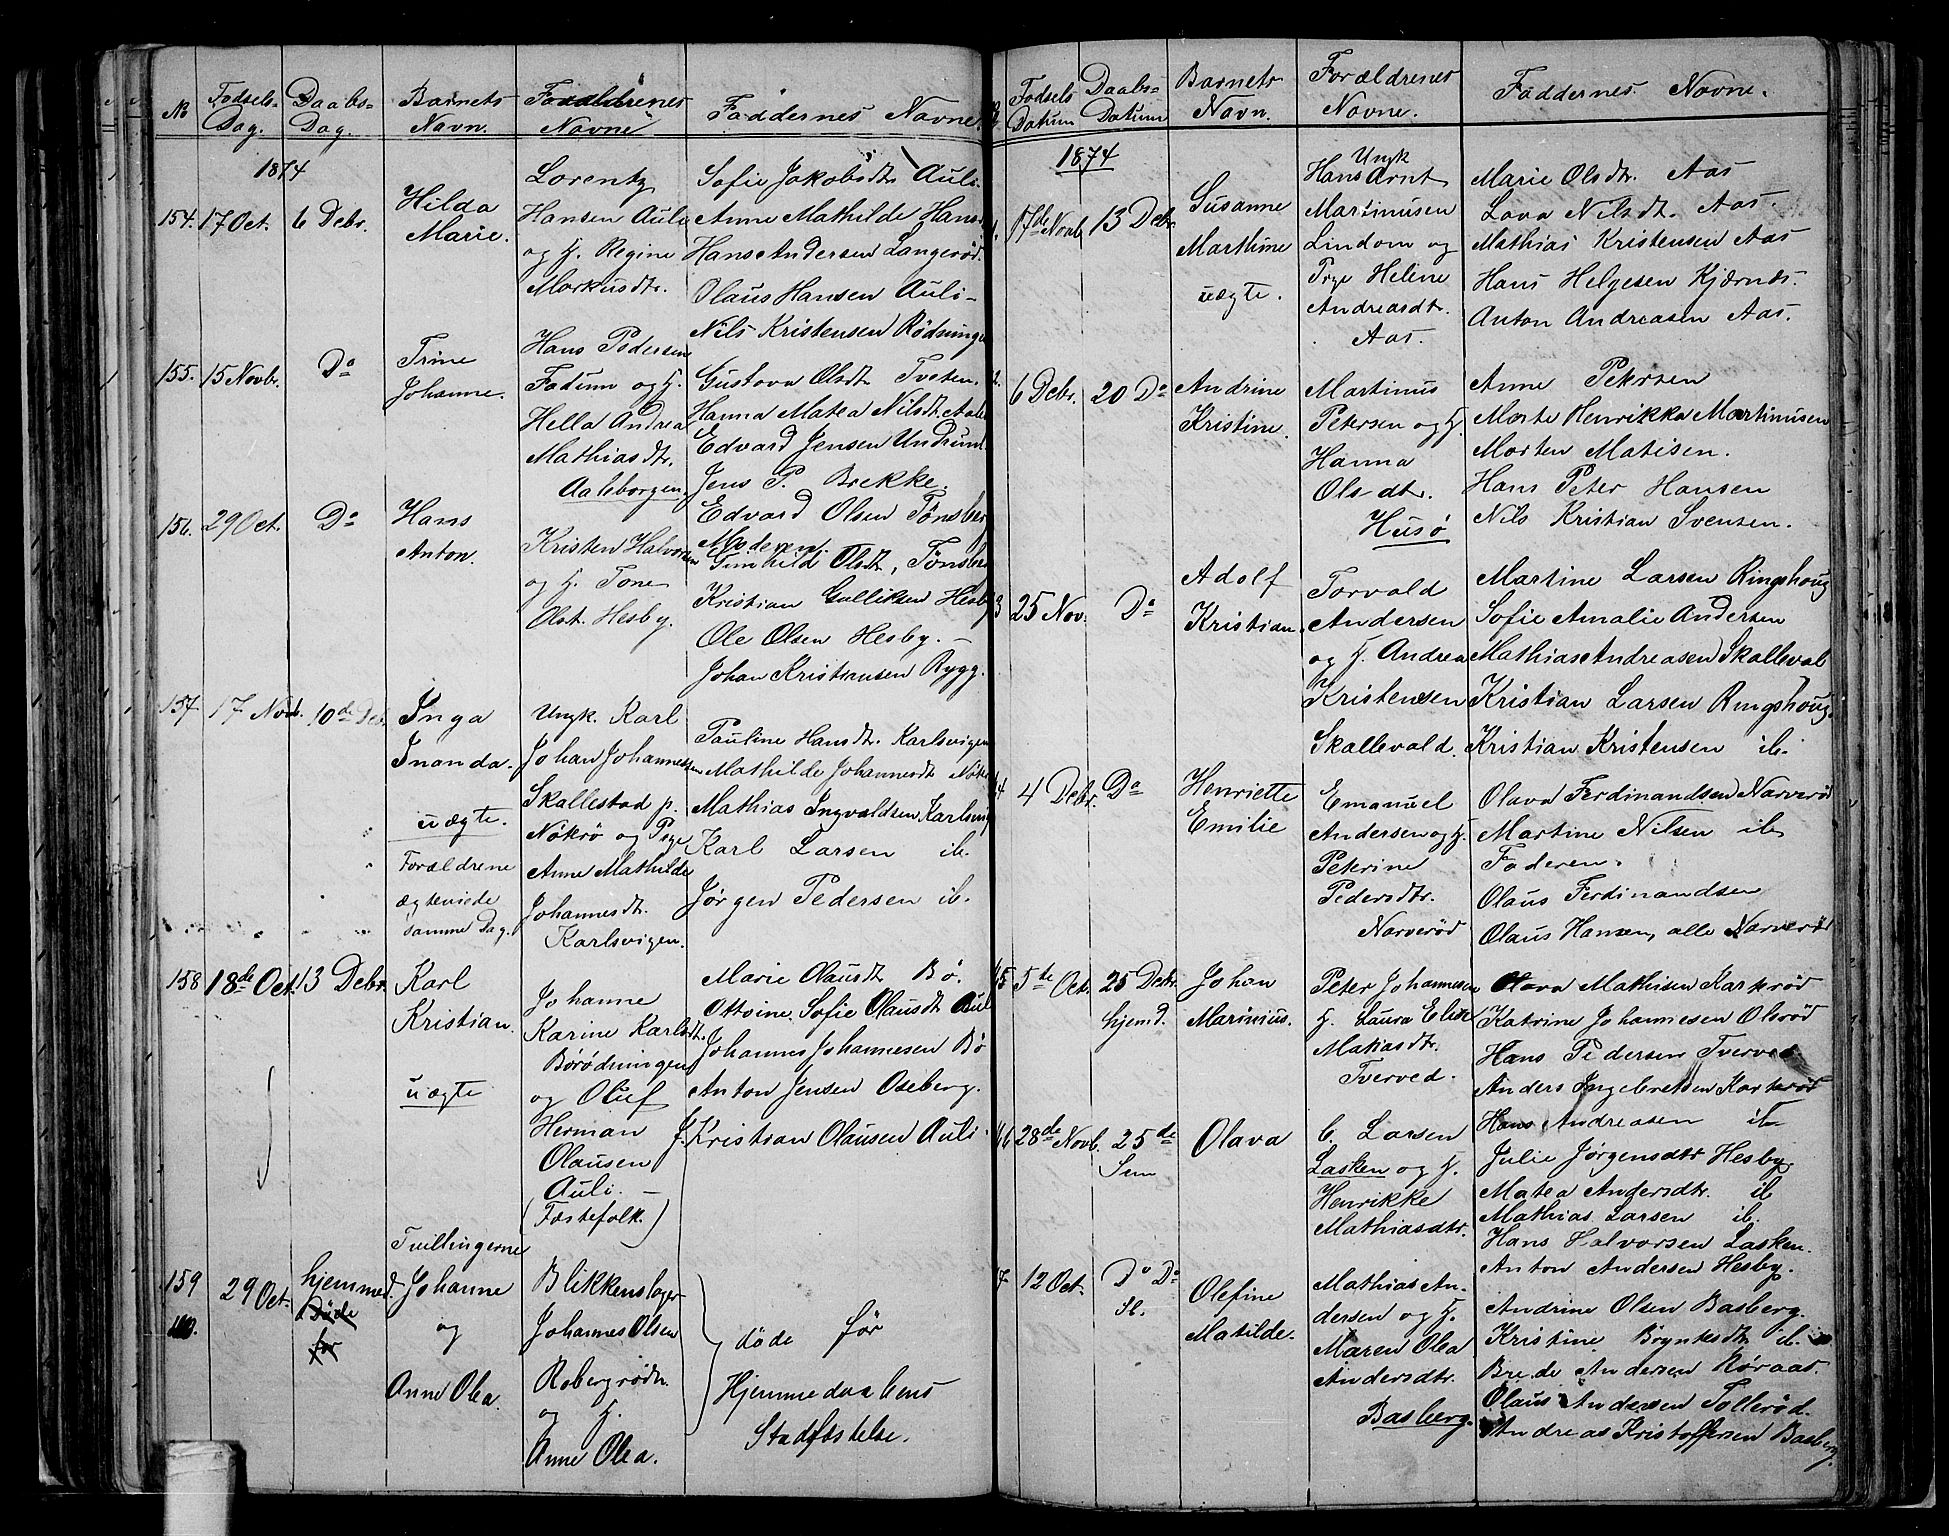 No
Fødsels-
Dag.
Daabs-
Dag.
Barnets
Navn.
Forældrenes
Navne
Faddernes Navne
1874
154.
17 Oct.
6 Debr.
Hilda
Marie.
Lorentz
Hansen Auli
og H. Regine
Markusdtr.
Sofie Jakobsdtr Auli.
Anne Mathilde Hans
Hans Andersen Langerød.
Olaus Hansen Auli -
Nils Kristensen Rødsunge
155.
15 Novbr.
Do
Trine
Johanne.
Hans Pedersen
Fadum og H.
Hella Andrea
Mathiasdtr.
Aaleborgen.
Gustava Olsdtr Tveten.
Hanna Matea Nilsdtr. Aale
Edvard Jensen Undrum
Jens P. Brekke.
156.
29 Oct.
Do
Hans
Anton.
Kristen Halvorsen
og H. Tone
Olsdt. Hesby.
Edvard Olsen Tønsber
Moderen.
Gunhild Olsdtr, Tønsber
Kristian Gulliksen Hesby
Ole Olsen Hesby. -
Johan Kristiansen Rygg.
157.
17 Novb.
10de Deb.
Inga
Inanda.
uægte.
Forældrene
ægteviede
samme Dag.
Ungk. Karl
Johan Johannessen
Skallestad p.
Nøkrø og Pige
Anne Mathilde
Johannesdtr.
Karlsvigen.
Pauline Hansdtr. Karlsvigen
Mathilde Johannesdtr Nøk
Mathias Ingvaldsen, Karlsvig
Karl Larsen ib.
Jørgen Pedersen ib.
158
18de Oct.
13 Debr.
Karl
Kristian.
uægte
Johanne
Karine Karlsdtr.
Børødningen
og Oluf
Herman
Olausen
Auli. -
(Fæstefolk.)
Marie Olausdtr Bø.
Ottoine Sofie Olausdtr Aul
Johannes Johannesen Bø
Anton Jensen Oseberg.
J. Kristian Olausen Auli.
159
160.
29 Oct.
hjemmed.
Døde
før
Tvillingerne
Johanne
og
Anne Olea.
Blikkenslager
Johannes Olsen
Robergrødn.
og H.
Anne Olea.
døde før
Hjemmedaabens
Stadfæstelse.
Fødsels
Datum
Daabs-
Datum
Barnets
Navn.
Forældrenes
Navne.
Faddernes Navne.
1874
17de Novb.
13 Debr.
Susanne
Marthine
uægte.
Ungk
Hans Arnt
Martinusen
Lindom og
Pige Helene
Andreasdtr.
Aas.
Marie Olsdtr. Aas
Lava Nilsdtr. Aas.
Mathias Kristensen Aas
Hans Helgesen Kjærnes.
Anton Andreasen Aas.
2.
6 Debr.
20 Do
Andrine
Kristine.
Martinus
Petersen og H.
Hanna
Olsdtr.
Husø
Anne Petersen
Marte Henrikke Martinusen
Morten Matisen.
Hans Peter Hansen
Nils Kristian Svensen.
3
25 Nov.
Do
Adolf
Kristian.
Torvald
Andersen
og H. Andrea
Kristensen
Skallevald.
Martine Larsen Ringshoug
Sofie Amalie Andersen
Mathias Andreasen Skalleval
Kristian Larsen Ringshoug.
Kristian Kristensen ib.
4
4 Debr.
Do
Henriette
Emilie
Emanuel
Andersen og H.
Peterine
Pedersdtr.
Narverød
Olava Ferdinandsen Narverød
Martine Nilsen ib.
Faderen.
Olaus Ferdinandsen
Olaus Hansen, alle Narverød
5
5te Oct.
25 Debr.
hjemd.
Johan
Marinius.
Peter Johannesen
H. Laura Elise
Matiasdtr.
Tverved.
Olava Mathisen Karkrød
Katrine Johannesen Olsrød
Hans Pedersen Tverved
Anders Ingebretsen Karkrød
Hans Andreasen ib.
6
28de Novb.
25de
Sem
Olava
C. Larsen
Lasken og H.
Henrikke
Mathiasdtr.
Julie Jørgensdtr Hesby
Matea Andersdtr. ib
Mathias Larsen ib.
Hans Halvorsen Lasken.
Anton Andersen Hesby.
7
12 Oct.
Do Do
Sl.
Olefine
Matilde.
Mathias An-
dersen og H.
Maren Olea
Andersdtr.
Basberg.
Andrine Olsen Basberg.
Kristine Brynkesdtr ib.
Brede Andersen Røraas.
Olaus Andersen Tollerød.
Andreas Kristoffersen Basberg.